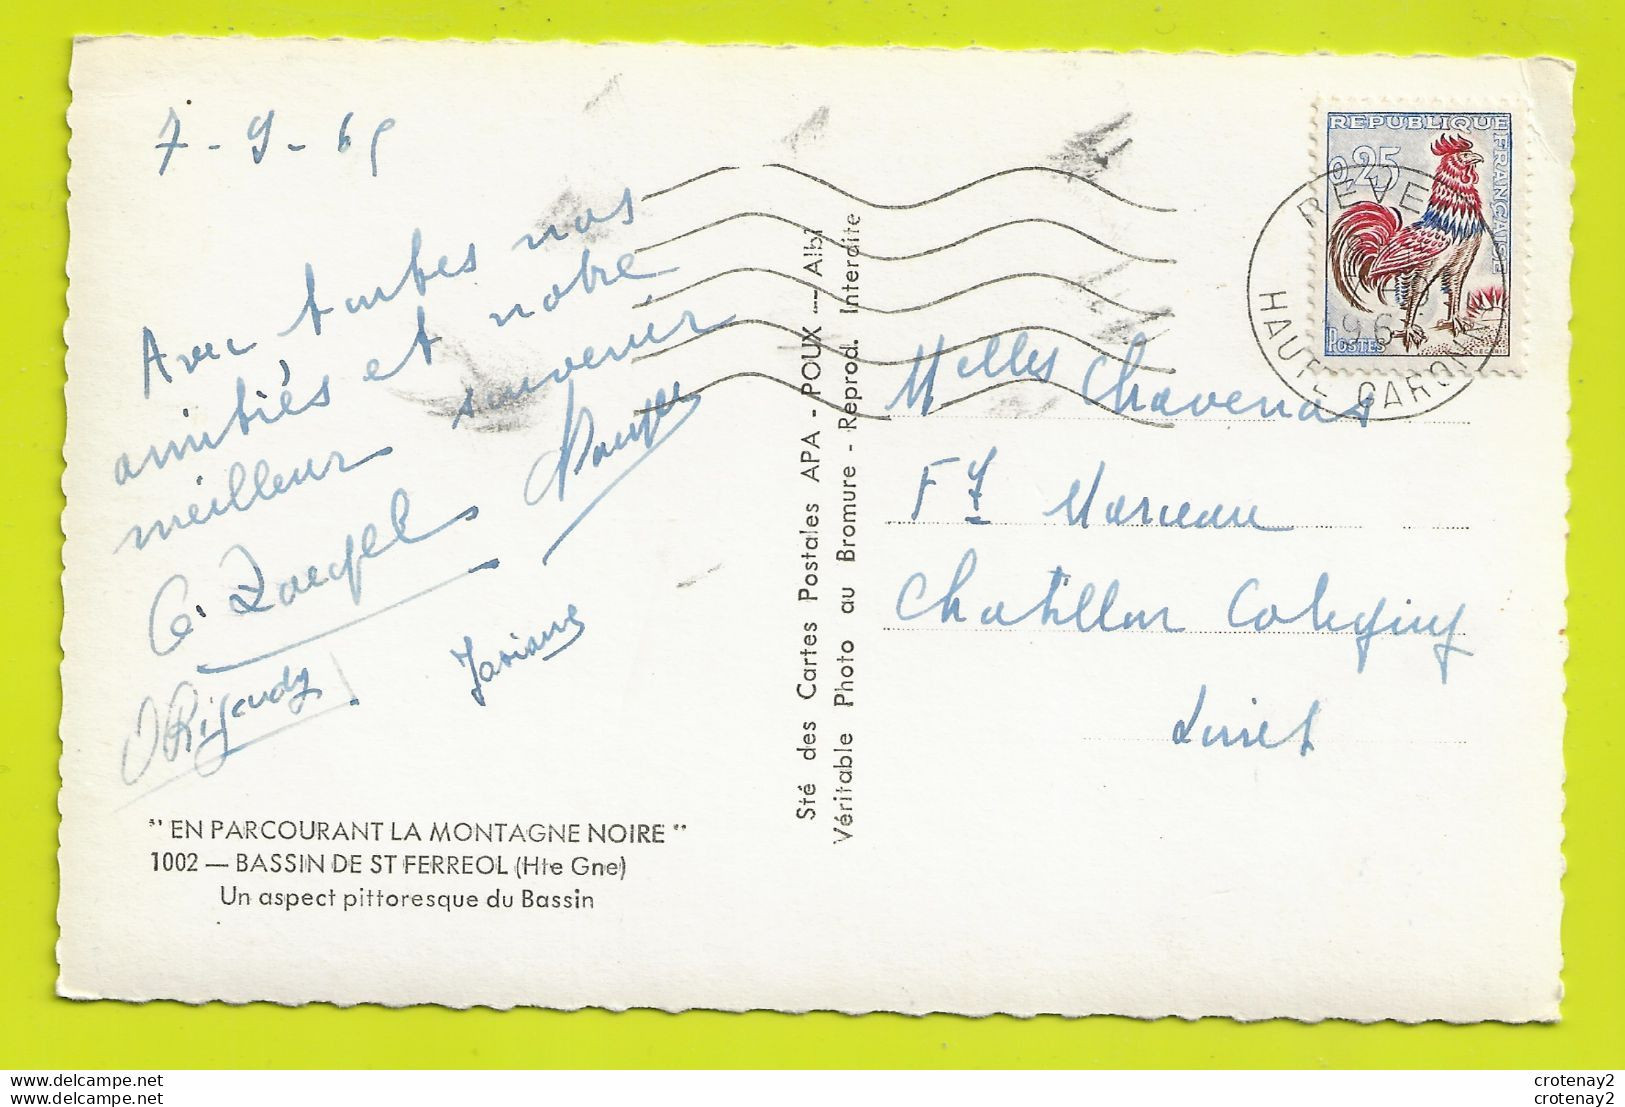 7-9-65
Avec toutes nos
amitiés et notre
meilleur souvenir
Mariane
Rigaudy
" EN PARCOURANT LA MONTAGNE NOIRE "
1002 — BASSIN DE ST FERREOL (Hte Gne)
Un aspect pittoresque du Bassin
Sté des Cartes Postales APA - POUX — Albi
Véritable Photo au Bromure - Reprod. Interdite
REPUBLIQUE FRANÇAISE
0,25
POSTES
REVEL
HAUTE GARONNE
Melles Chavenas
F7 Marceau
Chatillon Coligny
Loiret
www.delcampe.net
www.delcampe.net
crotenay2
crotenay2